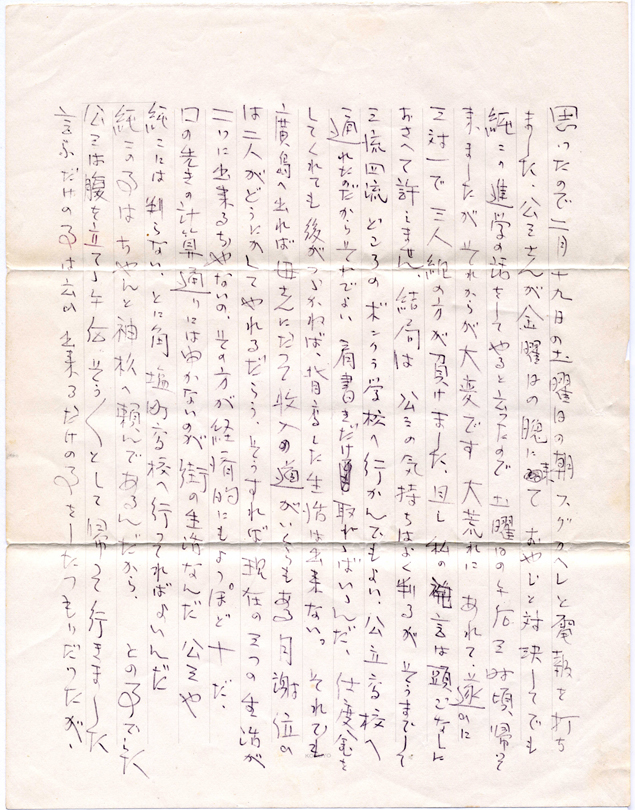 思ったので二月十九日の土曜日の朝スグカヘレと電報を打ち
ました、公三さんが金曜日の晩に来て おやじと対決してでも
純この進学の話をしてやると云ったので 土曜日の午后三時頃、帰って
来ましたが それからが大変です 大荒れに あれて、遂のに
三対一で三人組の方が負けました、但し私の発言は頭ごなしに
おさへて許しません、結局は 公三の気持ちはよく判るが そうまでして
三流四流どころのボンクラ学校へ行かんでもよい、公立高校へ
通れたのだから それでよい 肩書きだけ取れゝばいゝんだ、仕度金を
してくれても後がつゞかねば、背のびした生活は出来ない。それでも
廣島へ出れば母さんにだって収入の道がいくらもある 月謝位の
は二人がどうにかしてやれるだらう、そうすれば現在の三つの生活が
二つに出来るぢゃないの、その方が経済的にもよっぽど + だ
口の先きの計算通りには歩かないのが街の生活なんだ 公三や
純こには判らない、とに角塩町高校へ行ってればよいんだ
純この事はちゃんと神杉へ頼んであるんだから、 との事でした
公三は腹を立てゝ午后、そう〳〵として帰って行きました
言ふだけの事は云ひ 出来るだけの事をしたつもりだったが、